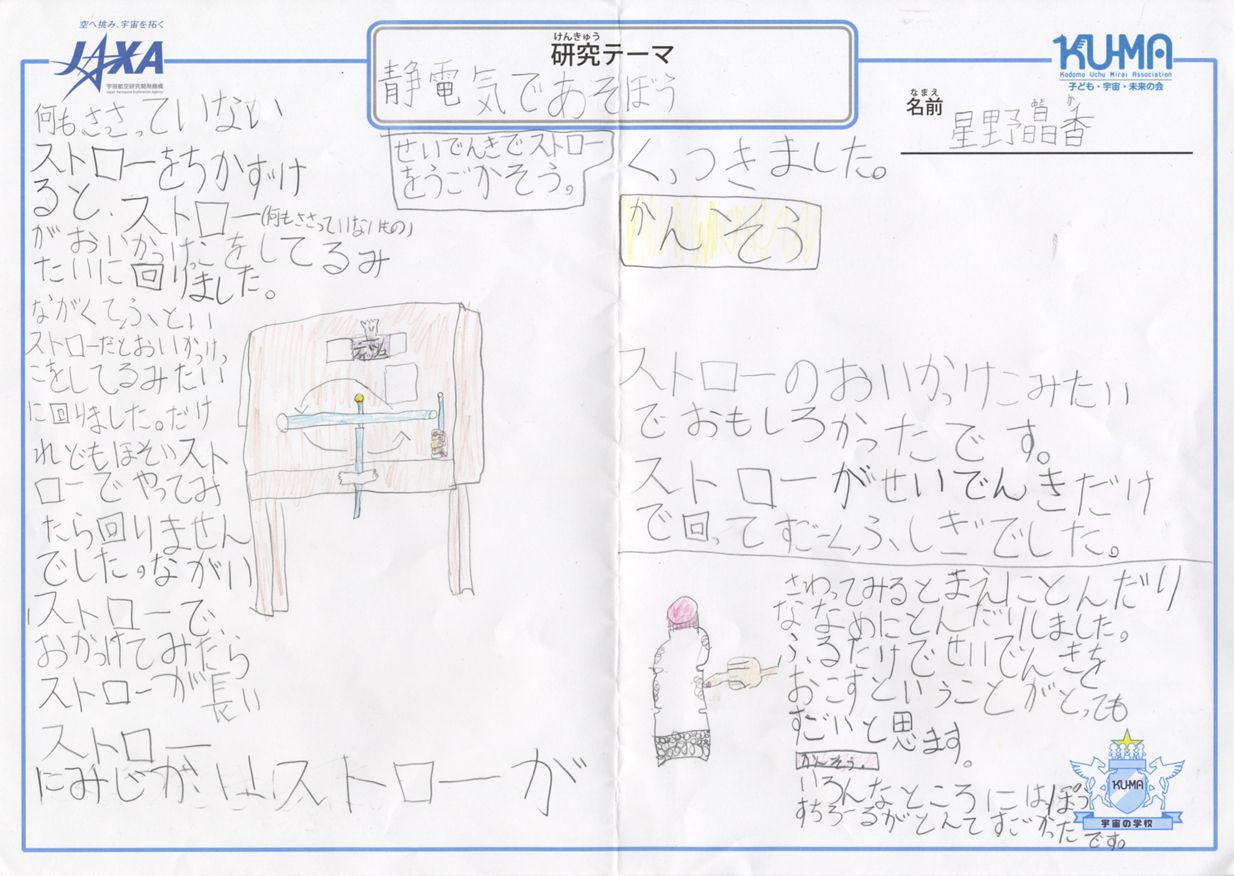 空へ挑み、宇宙を拓く
JAXA
宇宙航空研究開発機構
Japan Aerospace Exploration Agency
けんきゅう
研究テーマ
静電気であそぼう
KU-MA
Kodomo Uchu Mirai Association
子ども・宇宙・未来の会
なまえ
名前
星野晶香
せいでんきでストロー
をうごかそう。
何もささっていない
ストローをちかずけ
ると、ストロー(何もささっていないもの)
がおいかけっこをしてるみ
たいに回りました。
ながくて、ふとい
ストローだとおいかけっ
こをしてるみたい
に回りました。だけ
れどもほそいスト
ローでやってみ
たら回りません
でした。ながい
ストローで、
おかけてみたら
ストローが長い
ストロー
にみじかいストローが
ティッシュ
くっつきました。
かんそう
ストローのおいかけこみたい
でおもしろかったです。
ストローがせいでんきだけ
で回ってすごーくふしぎでした。
さわってみるとまえにとんだり
ななめにとんだりしました。
ふるだけでせいでんきを
おこすということがとっても
すごいと思います。
かんそう.
いろんなところにはっぽう
すちろーるがとんですごかった
です。
KU-MA
宇宙の学校